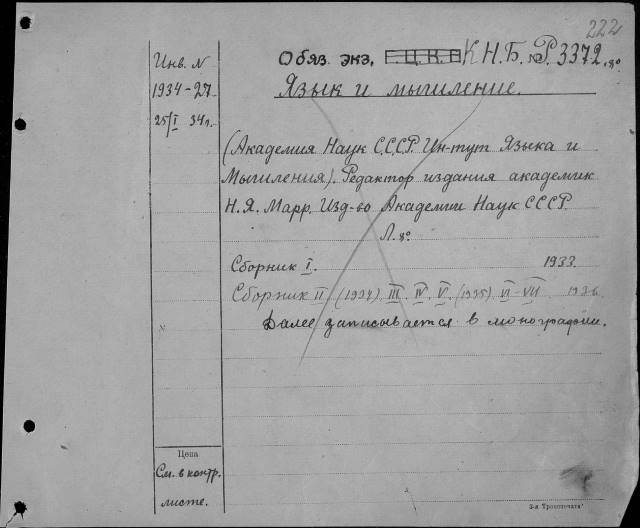 222
Инв. N
1934-27
25/I 34г.
Обяз. экз. Г.Ц.К.Б К.Н.Б. №Р.3372.8°
Язык и мышление.
(Академия Наук С.С.С.Р. Ин-тут Языка и
Мышления). Редактор издания академик
Н.Я. Марр. Изд-во Академии Наук СССР.
Л. 8°
Сборник I. 1933.
Сборник II (1934) III. IV. V. (1935) VI-VII 1936
Далее записывается в монографии.
Цена
См. в контр.
листе.